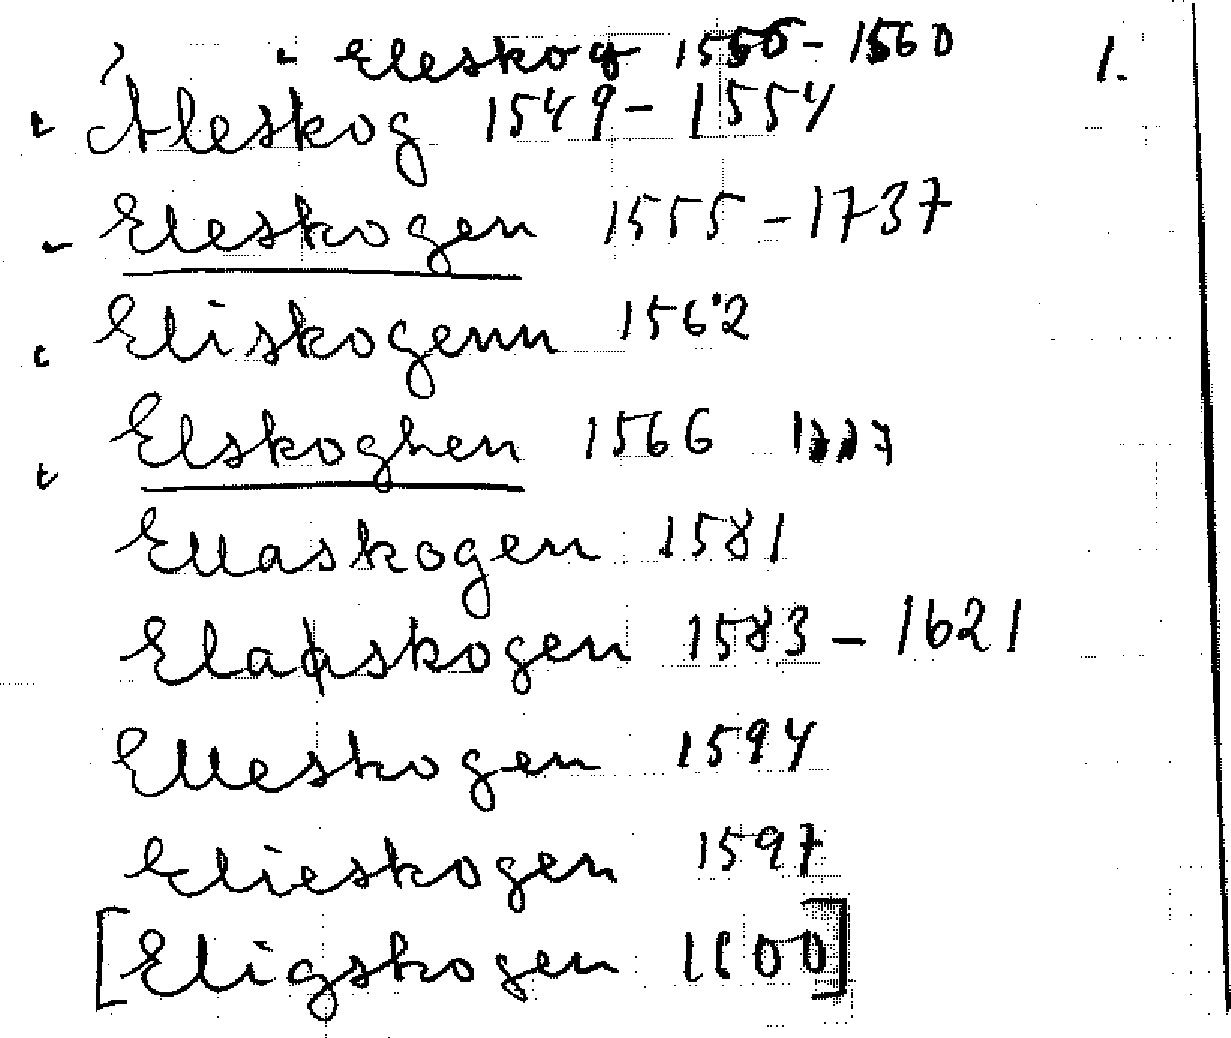 Eleskog 1556-1560 1.
Åleskog 1549-1554
Eleskogen 1555-1737
Eliskogenn 1562
Elskoghen 1566
Ellaskogen 1581
Elaskogen 1583-1621
Elleskogen 1594
Elieskogen 1597
[Eligskogen 1600]